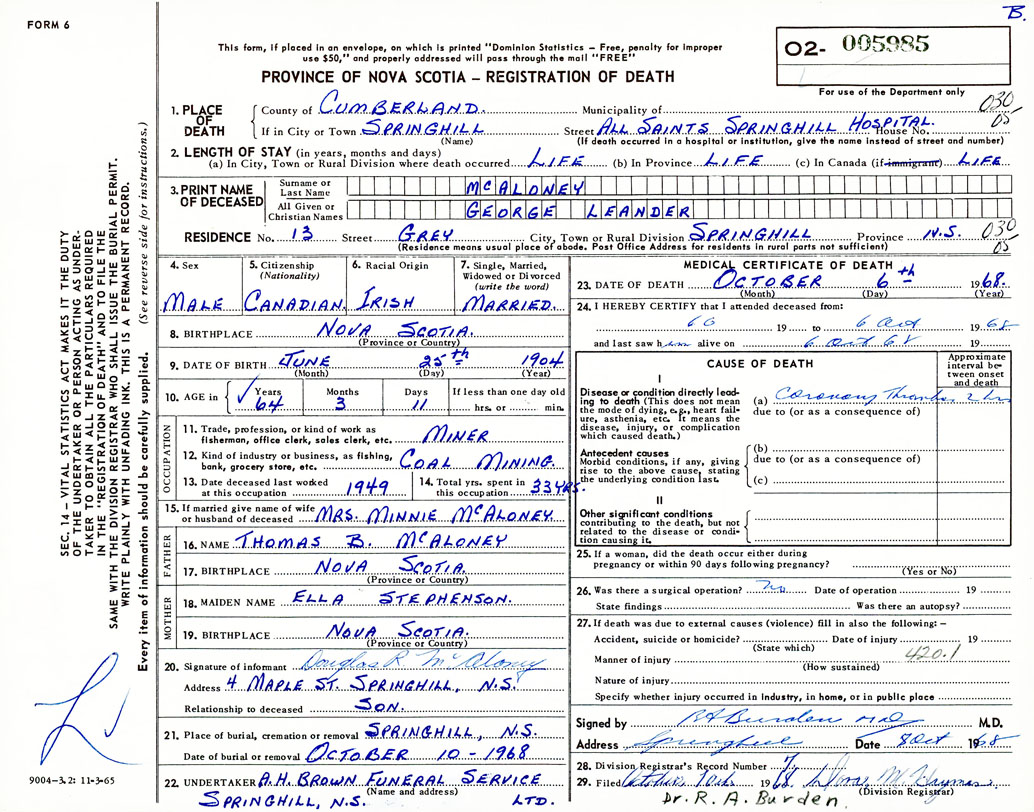 B.
FORM 6
This form, if placed in an envelope, on which is printed "Dominion Statistics – Free, penalty for improper
use $50," and properly addressed will pass through the mail "FREE"
PROVINCE OF NOVA SCOTIA – REGISTRATION OF DEATH
02- 005985
For use of the Department only
1. PLACE OF DEATH
County of CUMBERLAND. Municipality of 030
If in City or Town SPRINGHILL Street ALL SAINTS SPRINGHILL HOSPITAL. House No. 05
(Name) (If death occurred in a hospital or institution, give the name instead of street and number)
2. LENGTH OF STAY (in years, months and days)
(a) In City, Town or Rural Division where death occurred LIFE (b) In Province LIFE (c) In Canada (if immigrant) LIFE
3. PRINT NAME OF DECEASED
Surname or Last Name McALONEY
All Given or Christian Names GEORGE LEANDER
RESIDENCE No. 13 Street GREY City, Town or Rural Division SPRINGHILL Province N.S. 030
05
(Residence means usual place of abode. Post Office Address for residents in rural parts not sufficient)
4. Sex
MALE
5. Citizenship (Nationality)
CANADIAN.
6. Racial Origin
IRISH
7. Single, Married, Widowed or Divorced (write the word)
MARRIED.
8. BIRTHPLACE NOVA SCOTIA.
(Province or Country)
9. DATE OF BIRTH JUNE 25th 1904
(Month) (Day) (Year)
10. AGE in Years Months Days If less than one day old
64 3 11 hrs. or min.
OCCUPATION
11. Trade, profession, or kind of work as
fisherman, office clerk, sales clerk, etc. MINER
12. Kind of industry or business, as fishing,
bank, grocery store, etc. COAL MINING.
13. Date deceased last worked
at this occupation 1949
14. Total yrs. spent in
this occupation 33 YRS.
15. If married give name of wife
or husband of deceased MRS. MINNIE McALONEY
FATHER
16. NAME THOMAS B. McALONEY
17. BIRTHPLACE NOVA SCOTIA.
(Province or Country)
MOTHER
18. MAIDEN NAME ELLA STEPHENSON.
19. BIRTHPLACE NOVA SCOTIA.
(Province or Country)
20. Signature of informant Douglas R. McAloney
Address 4 MAPLE ST. SPRINGHILL, N.S.
Relationship to deceased SON.
21. Place of burial, cremation or removal SPRINGHILL, N.S.
Date of burial or removal OCTOBER 10 - 1968
22. UNDERTAKER A.H. BROWN FUNERAL SERVICE
(Name and address)
SPRINGHILL, N.S. LTD.
MEDICAL CERTIFICATE OF DEATH
23. DATE OF DEATH OCTOBER 6th 1968.
(Month) (Day) (Year)
24. I HEREBY CERTIFY that I attended deceased from:
60 19 to 6 Oct 1968
and last saw h alive on 6 Oct 68 19
CAUSE OF DEATH
Approximate interval between onset and death
I
Disease or condition directly leading to death (This does not mean the mode of dying, e.g., heart failure, asthenia, etc. It means the disease, injury, or complication which caused death.)
(a) Coronary 2 hrs
due to (or as a consequence of)
Antecedent causes
Morbid conditions, if any, giving rise to the above cause, stating the underlying condition last.
(b)
due to (or as a consequence of)
(c)
II
Other significant conditions
contributing to the death, but not related to the disease or condition causing it.
25. If a woman, did the death occur either during
pregnancy or within 90 days following pregnancy?
(Yes or No)
26. Was there a surgical operation? no Date of operation 19
State findings Was there an autopsy?
27. If death was due to external causes (violence) fill in also the following: –
Accident, suicide or homicide? Date of injury 19
(State which)
420.1
Manner of injury
(How sustained)
Nature of injury
Specify whether injury occurred in industry, in home, or in public place
Signed by RA Burden MD M.D.
Address Springhill Date 8 Oct 1968
28. Division Registrar's Record Number 7
29. Filed October 10th 1968
(Division Registrar)
Dr. R. A. Burden.
SEC. 14 – VITAL STATISTICS ACT MAKES IT THE DUTY
OF THE UNDERTAKER OR PERSON ACTING AS UNDER-
TAKER TO OBTAIN ALL THE PARTICULARS REQUIRED
IN THE "REGISTRATION OF DEATH" AND TO FILE THE
SAME WITH THE DIVISION REGISTRAR WHO SHALL ISSUE THE BURIAL PERMIT.
WRITE PLAINLY WITH UNFADING INK. THIS IS A PERMANENT RECORD.
Every item of information should be carefully supplied. (See reverse side for instructions.)
9004-3.2: 11-3-65